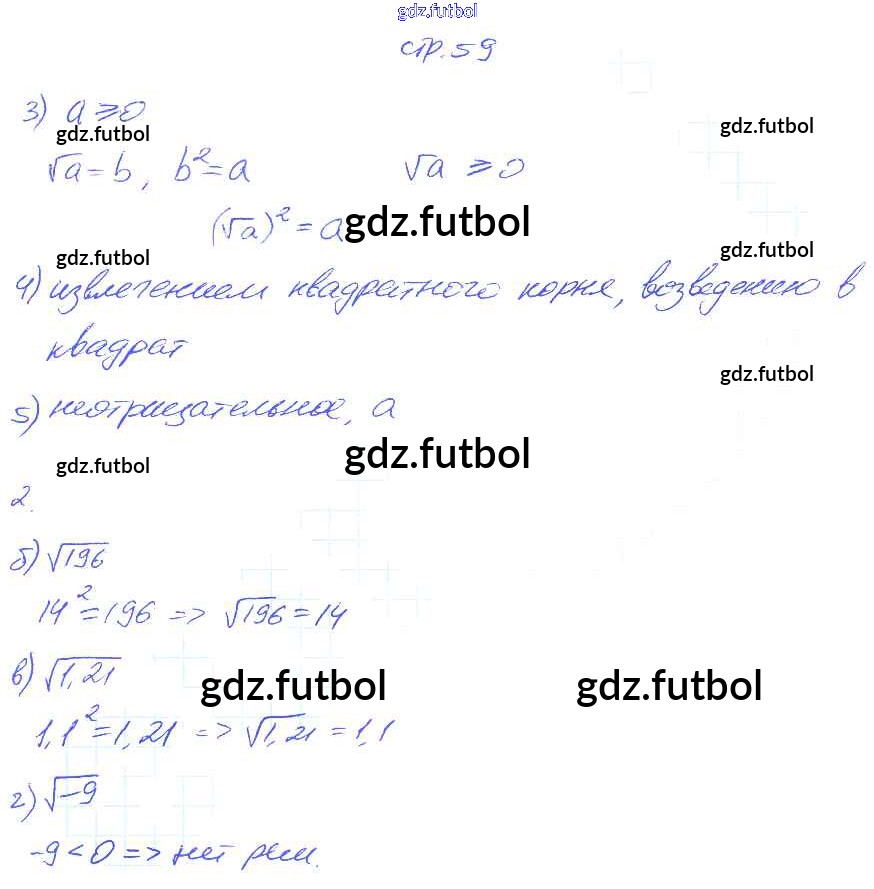 gdz.futbol
стр. 59
3) a ⩾ 0
gdz.futbol
gdz.futbol
√a = b, b² = a √a ⩾ 0
(√a)² = a
gdz.futbol
gdz.futbol
gdz.futbol
4) извлечением квадратного корня, возведению в
квадрат
gdz.futbol
5) неотрицательное, a
gdz.futbol
gdz.futbol
2.
б) √196
14² = 196 => √196 = 14
в) √1,21
gdz.futbol gdz.futbol
1,1² = 1,21 => √1,21 = 1,1
г) √-9
-9 < 0 => нет реш.